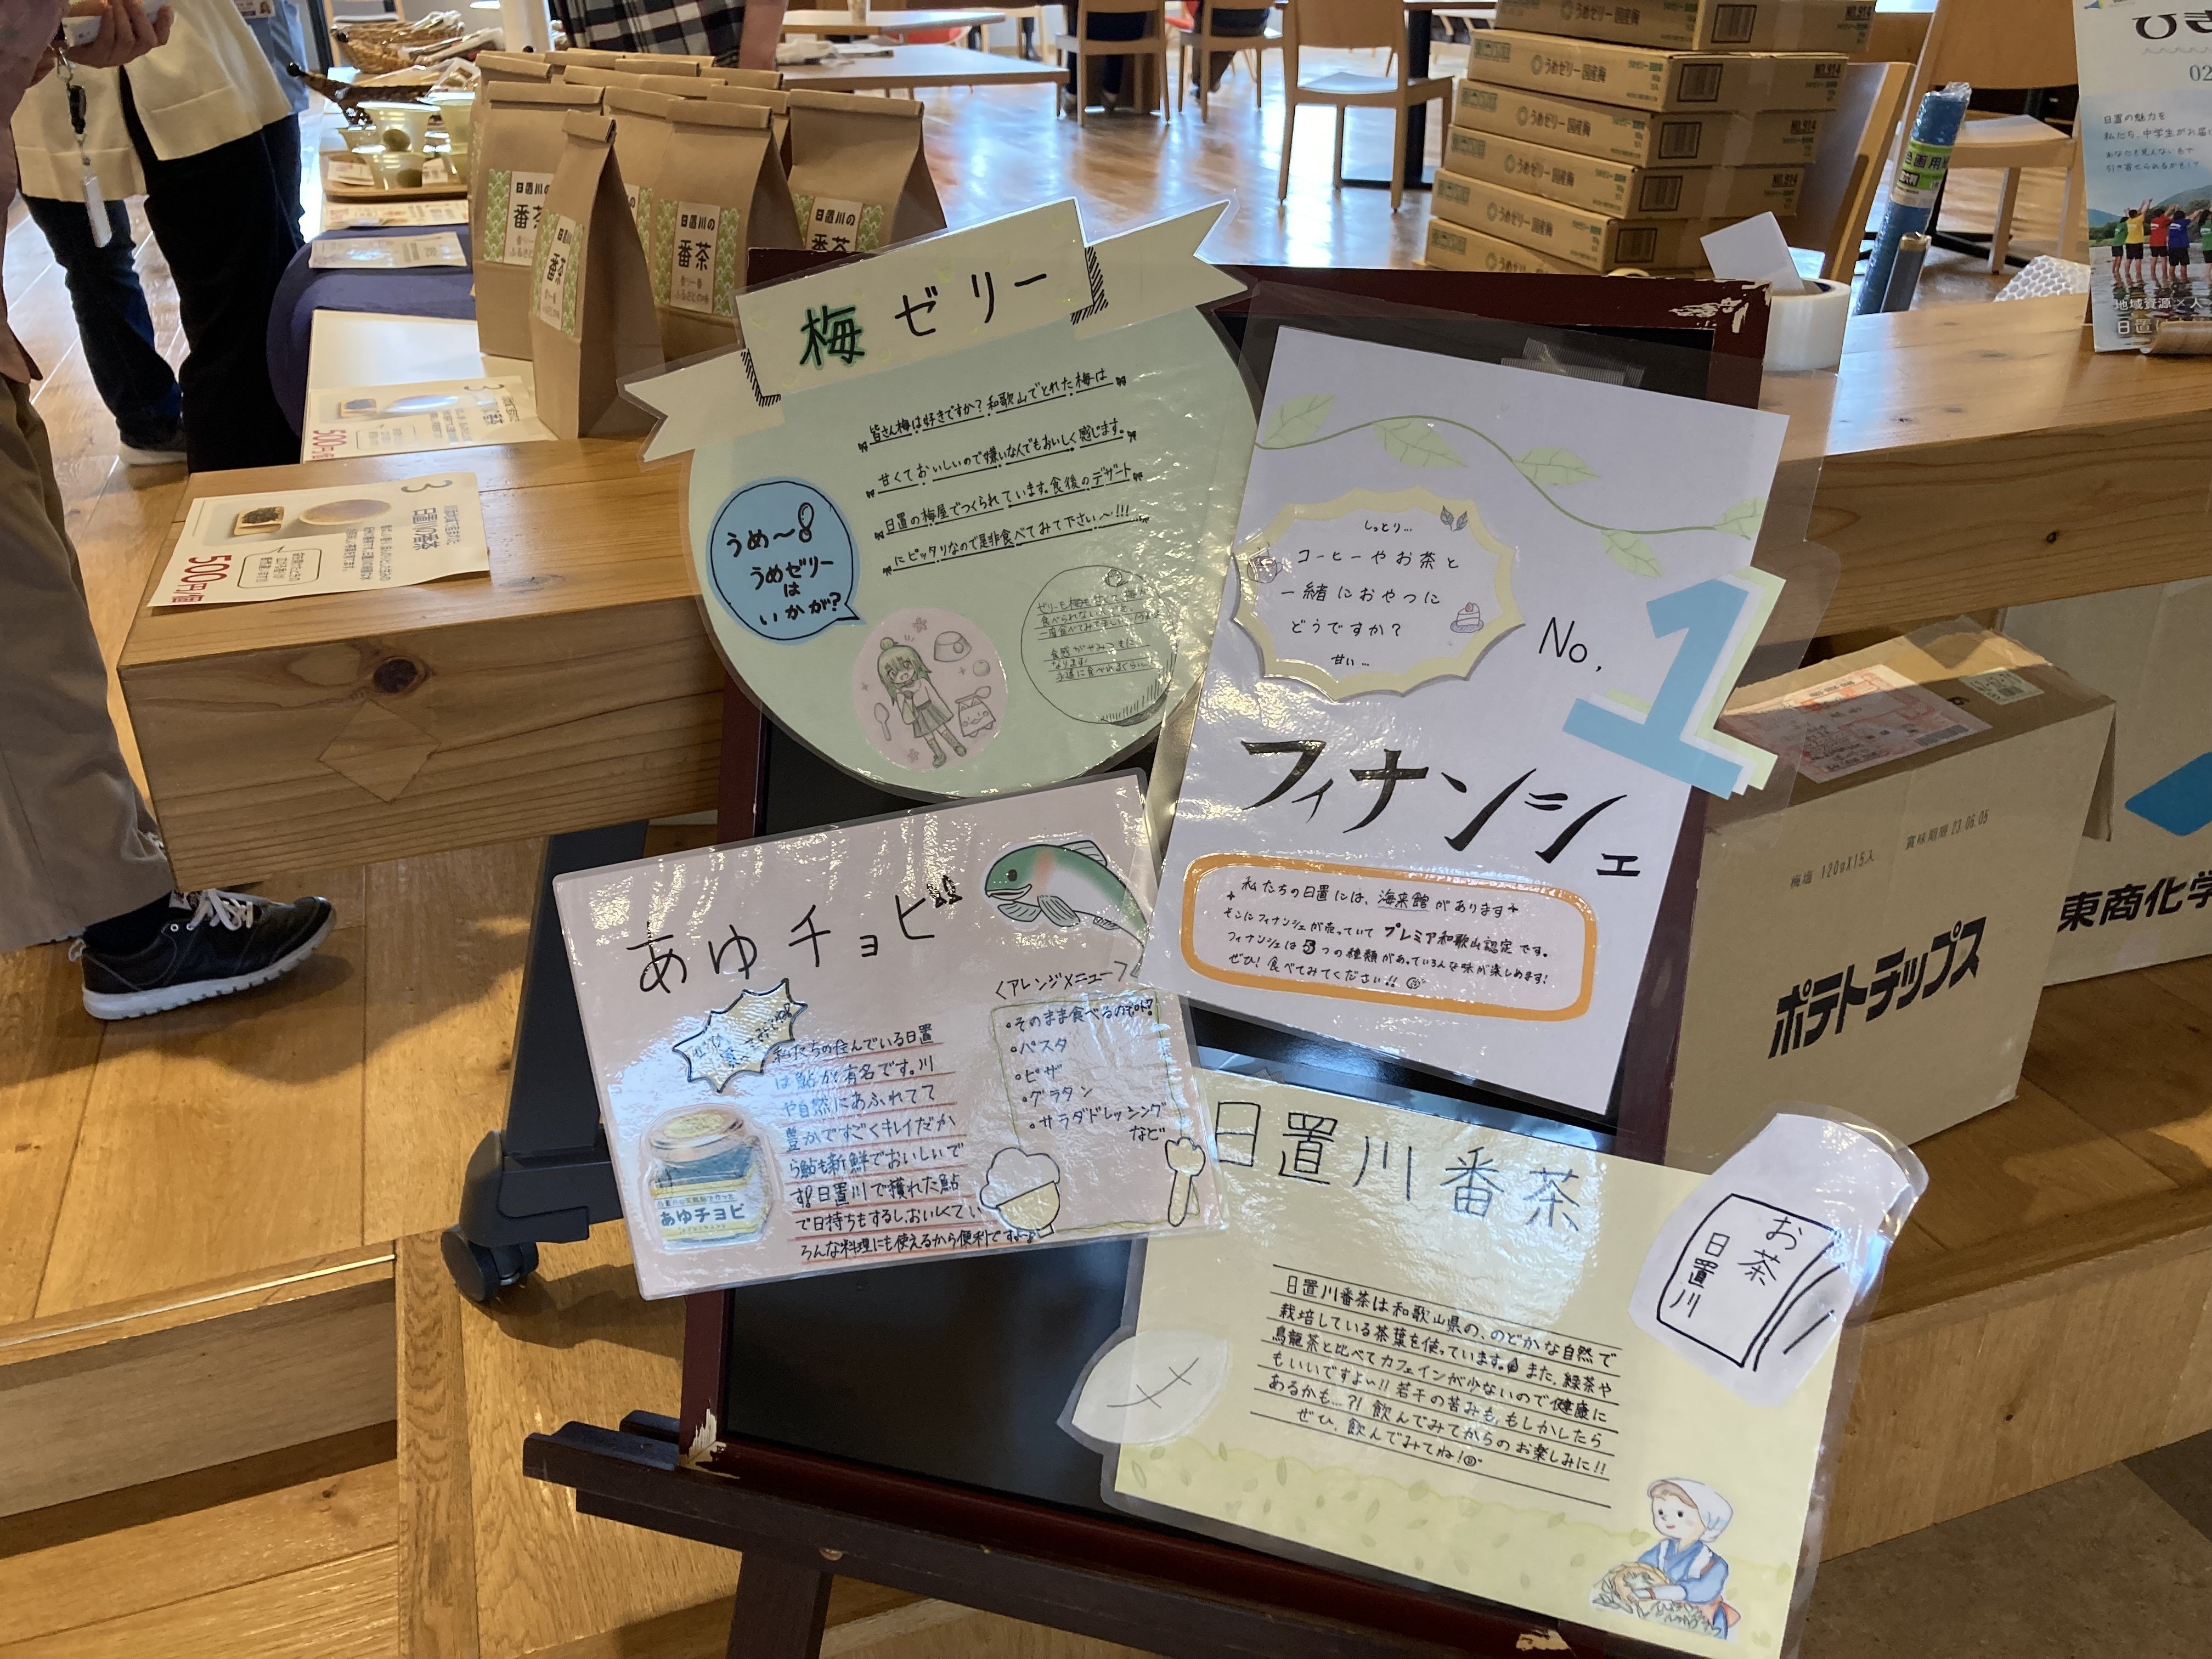 梅ゼリー
皆さん梅は好きですか？和歌山でとれた梅は
甘くておいしいので嫌いな人でもおいしく感じます。
日置の梅屋でつくられています。食後のデザート
にピッタリなので是非食べてみて下さい〜!!!
うめ〜
うめゼリー
は
いかが?
しっとり…
コーヒーやお茶と
一緒におやつに
どうですか？
甘い…
No.1
フィナンシェ
私たちの日置には、海来館があります
そこにフィナンシェが売っていてプレミア和歌山認定です。
フィナンシェは5つの種類があっていろんな味が楽しめます!
ぜひ!食べてみてください!!
あゆチョビ
私たちの住んでいる日置
は鮎が有名です。川
や自然にあふれてて
豊かですごくキレイだか
ら鮎も新鮮でおいしいで
す!日置川で獲れた鮎
で日持ちもするし、おいしくてい
ろんな料理にも使えるから便利ですよ
あゆチョビ
〈アレンジメニュー〉
・パスタ
・ピザ
・グラタン
・サラダドレッシング
など
日置川番茶
日置川番茶は和歌山県の、のどかな自然で
栽培している茶葉を使っています。また、緑茶や
烏龍茶と比べてカフェインが少ないので健康に
もいいですよ〜!!若干の苦みも、もしかしたら
あるかも…?!飲んでみてからのお楽しみに!!
ぜひ、飲んでみてね!
お茶
日置川
日置川の
番茶
日置川の
番茶
日置川の
番茶
3
日置川の番茶
500円/個
500円/個
うめゼリー国産梅
NO.914
うめゼリー国産梅
NO.914
うめゼリー国産梅
NO.914
うめゼリー国産梅
NO.914
うめゼリー国産梅
うめゼリー国産梅
02
日置の魅力を
私たち、中学生がお届
地域資源×人
日置
梅塩 120g×15入
賞味期限 23.06.05
ポテトチップス
東商化学